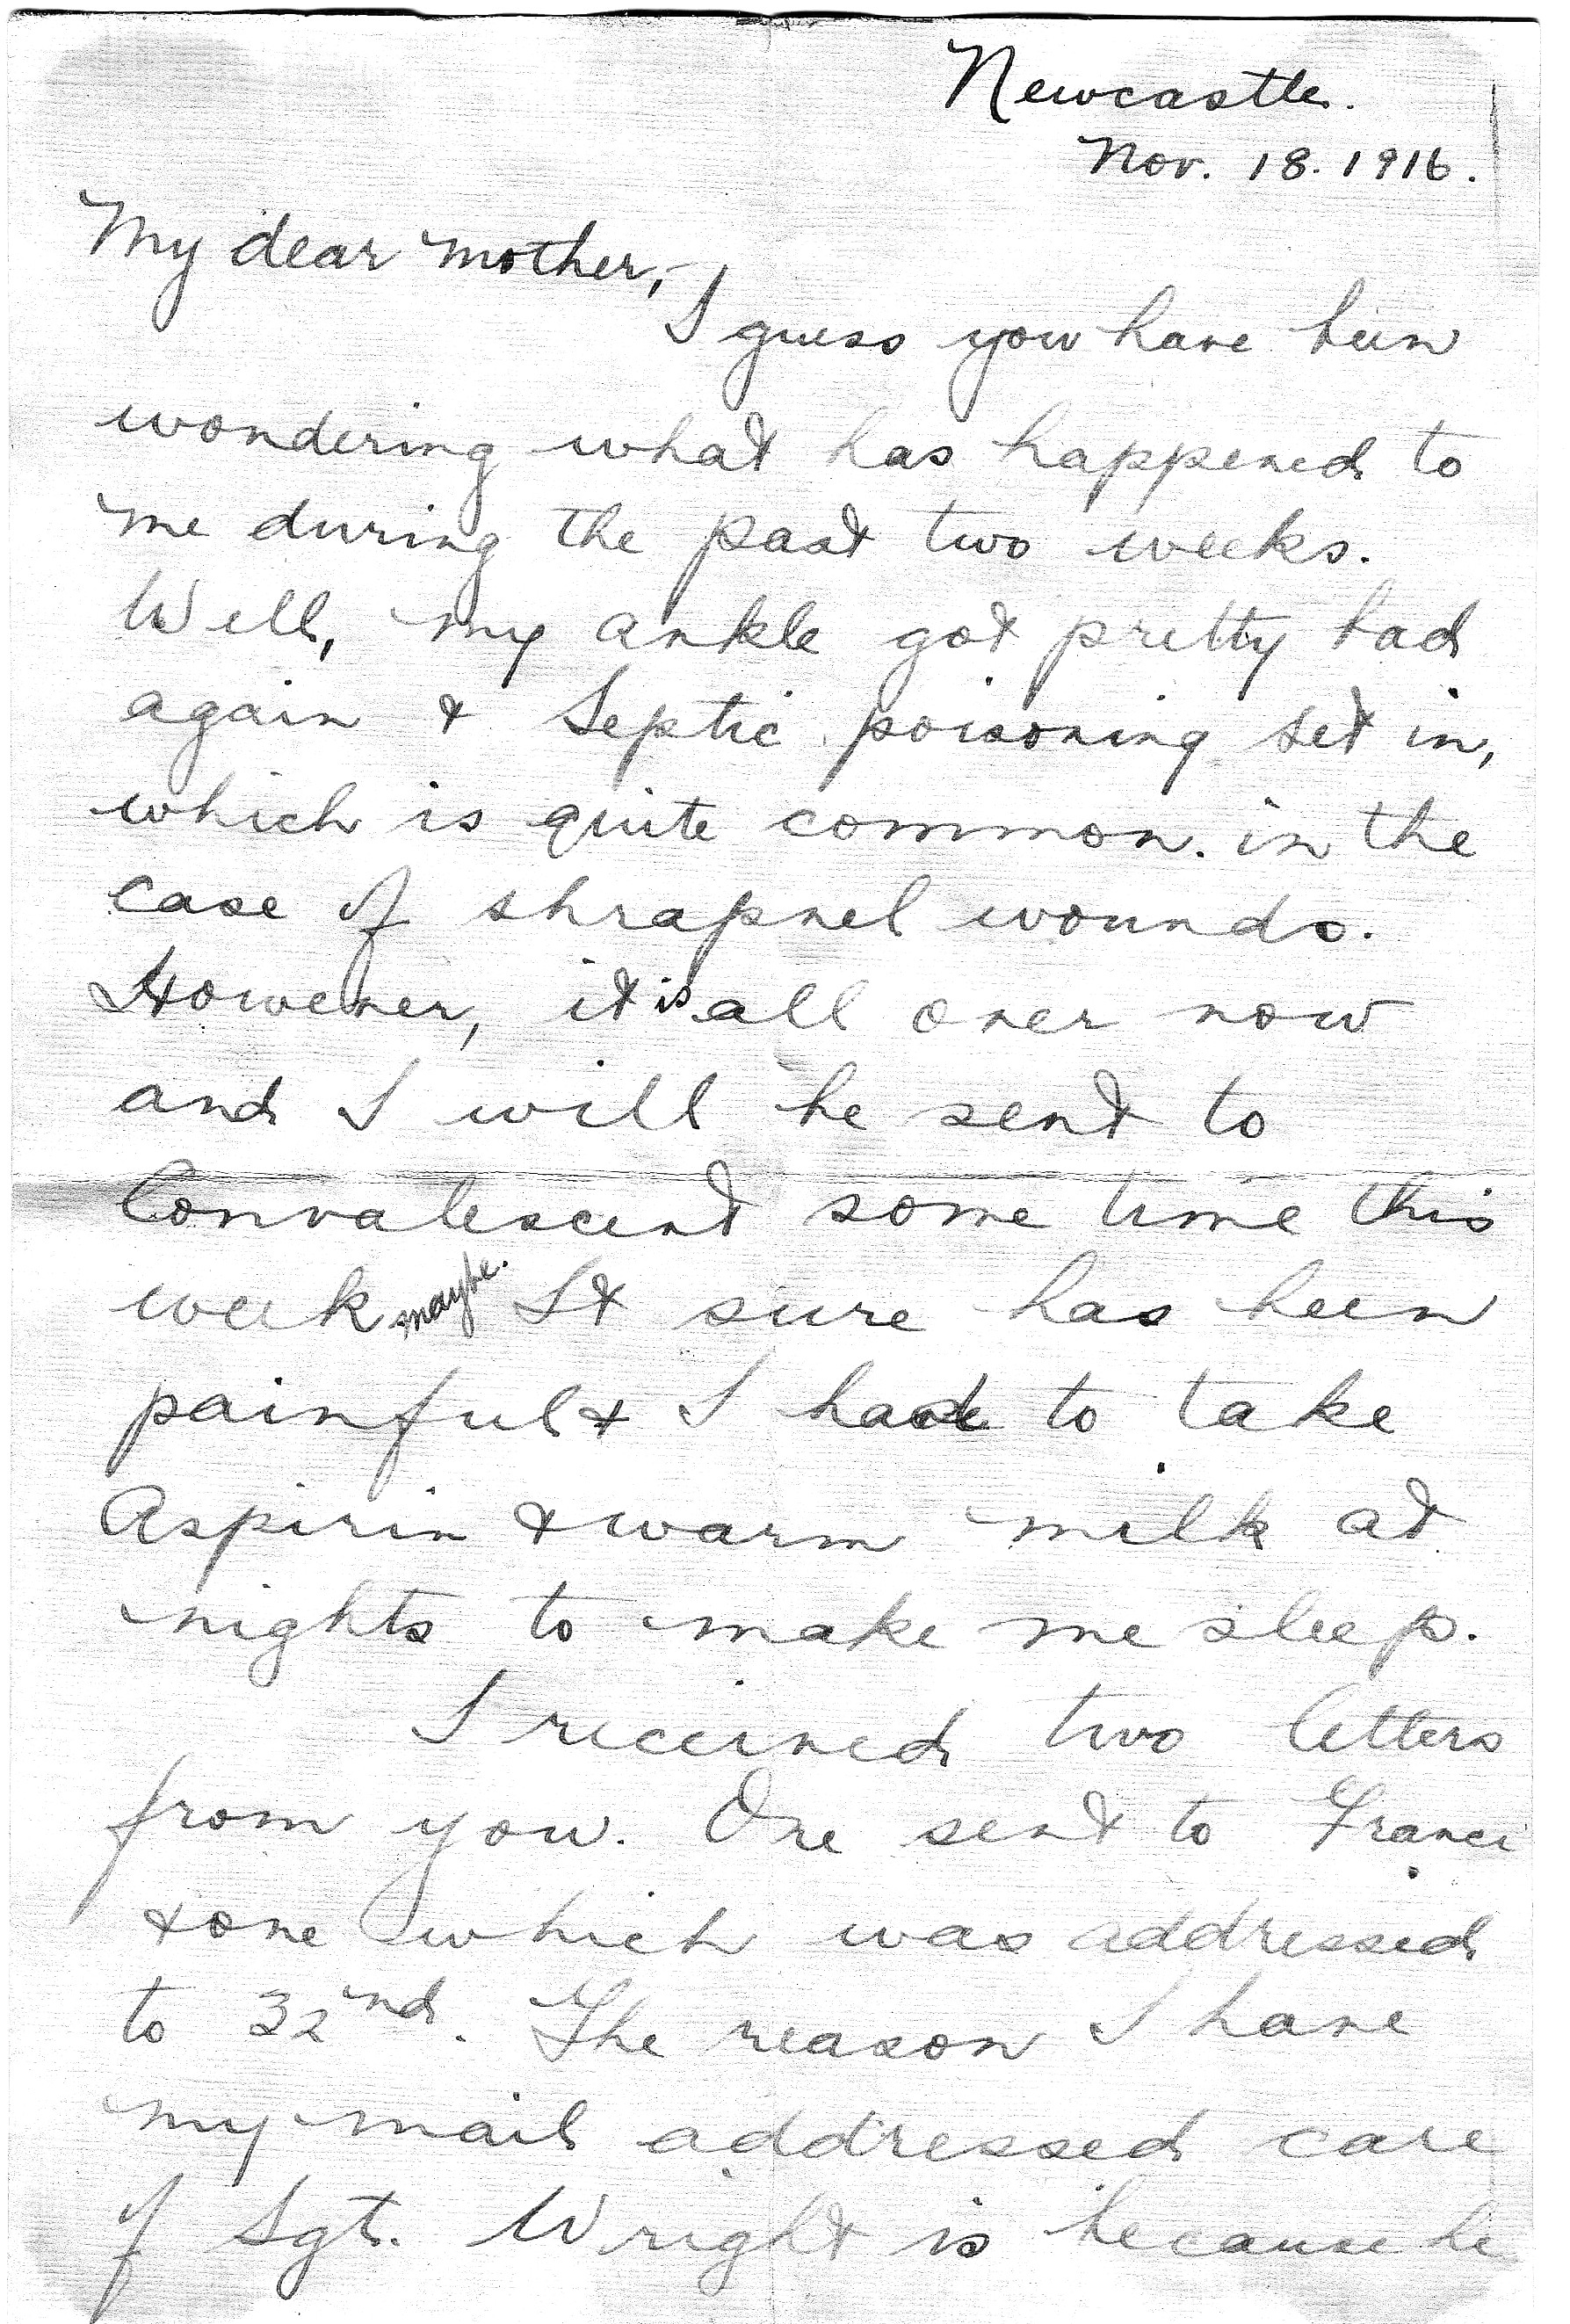 Newcastle.
Nov. 18. 1916.
My dear mother,-
I guess you have been
wondering what has happened to
me during the past two weeks.
Well, my ankle got pretty bad
again & Septic poisoning set in,
which is quite common. in the
case of shrapnel wounds.
However, it is all over now
and I will be sent to
Convalescent some time this
week maybe. It sure has been
painful & I had to take
Aspirin & warm milk at
nights to make me sleep.
I received two letters
from you. One sent to France
& one which was addressed
to 32nd. The reason I have
my mail addressed care
of Sgt. Wright is because he